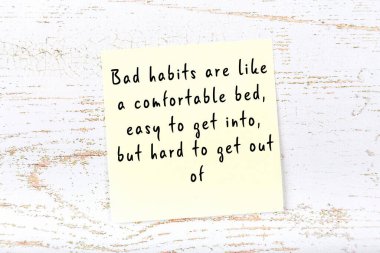 Bad habits are like
a comfortable bed,
easy to get into,
but hard to get out
of